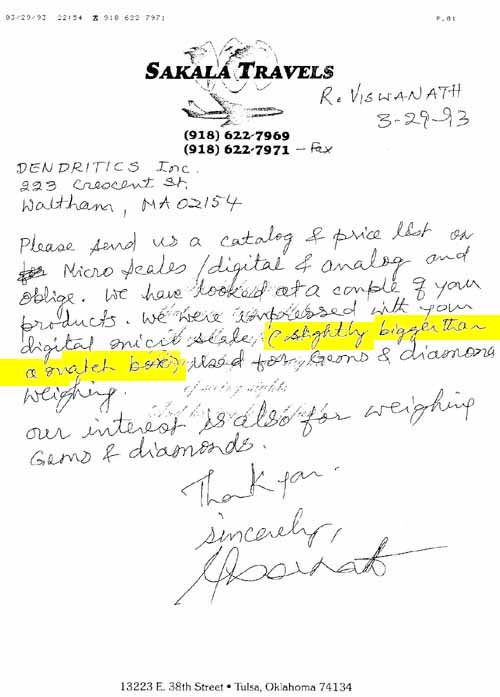 03/29/93 22:54 918 622 7971 P.01
SAKALA TRAVELS
R. VISWANATH
3-29-93
(918) 622-7969
(918) 622-7971 - Fax
DENDRITICS Inc.
223 Crescent St.
Waltham, MA 02154
Please send us a catalog & price list on
Micro Scales / digital & analog and
oblige. We have looked at a couple of your
products. We were impressed with your
digital scale, (slightly bigger than
a match box) used for Gems & diamond
weighing.
our interest is also for weighing
Gems & diamonds.
Thank you.
sincerely,
13223 E. 38th Street • Tulsa, Oklahoma 74134